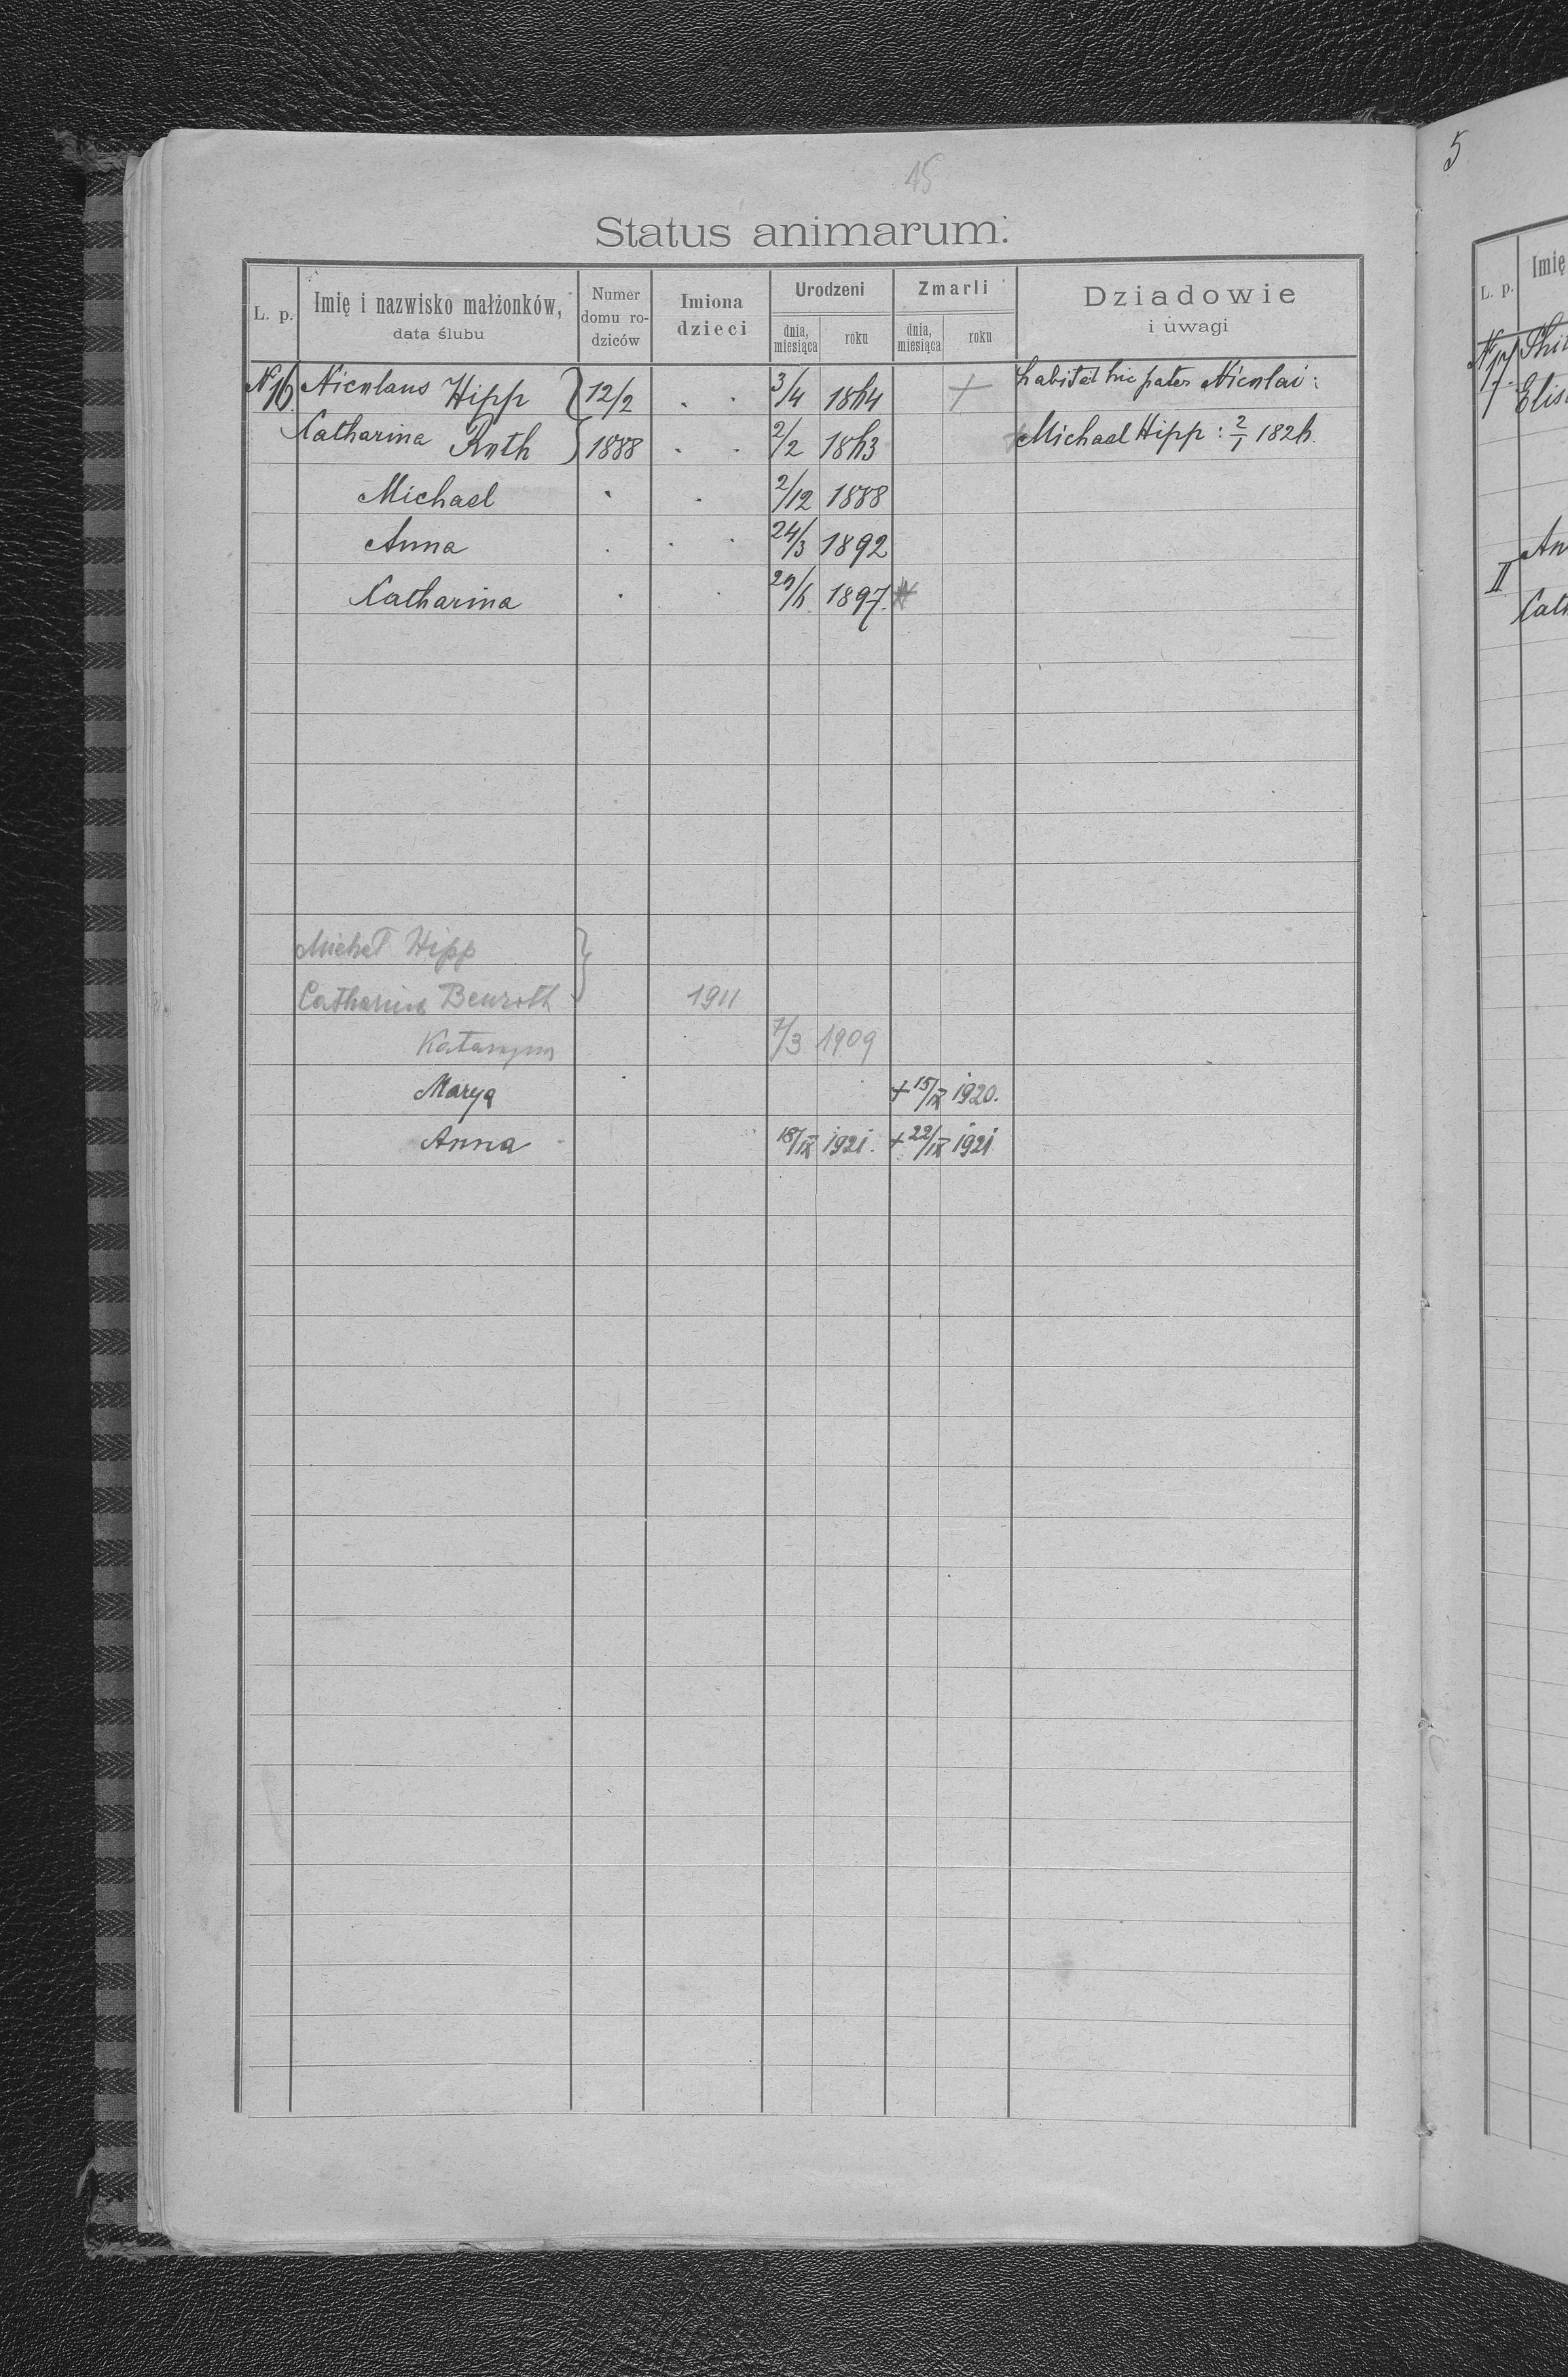 15
Status animarum.
L. p. Imię i nazwisko małżonków, data ślubu Numer domu rodziców Imiona dzieci Urodzeni dnia, miesiąca roku Zmarli dnia, miesiąca roku Dziadowie i uwagi
N 16 Nicolaus Hipp } 12/2 . . 3/4 1864 + habitat hic pater Nicolai:
Catharina Roth } 1888 . . 2/2 1863 + Michael Hipp: 2/1 1826.
Michael . . 2/12 1888
Anna . . . 24/3 1892
Catharina . . 29/6 1897.
Michał Hipp }
Catharina Benroth 1911
Katarzyna 7/3 1909
Marya + 15/IX 1920.
Anna 18/IX 1921. + 22/IX 1921
5
L. p. Imię
N 17
Elis
An
II
Cath